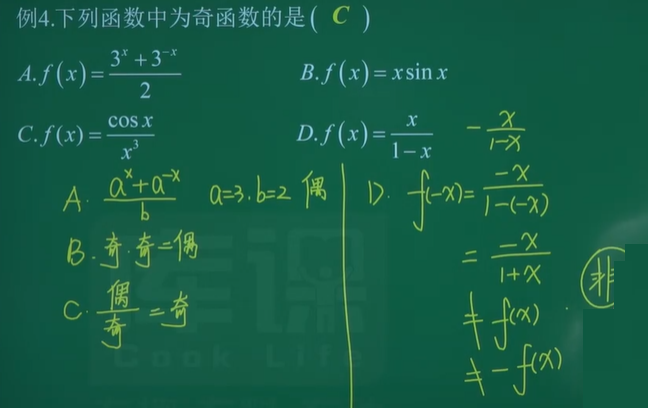 例4.下列函数中为奇函数的是( C )
A.f(x)=(3^x+3^-x)/2
B.f(x)=xsin x
C.f(x)=cos x/x^3
D.f(x)=x/(1-x)
-x/(1-x)
A. (a^x+a^-x)/b a=3.b=2 偶
B.奇·奇=偶
C. 偶/奇=奇
D. f(-x)=-x/(1-(-x))
=-x/(1+x)
≠f(x)
≠-f(x)
非
库课
Cook Life